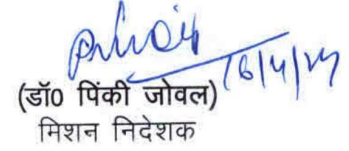 16/4/24
(डॉ0 पिंकी जोवल)
मिशन निदेशक